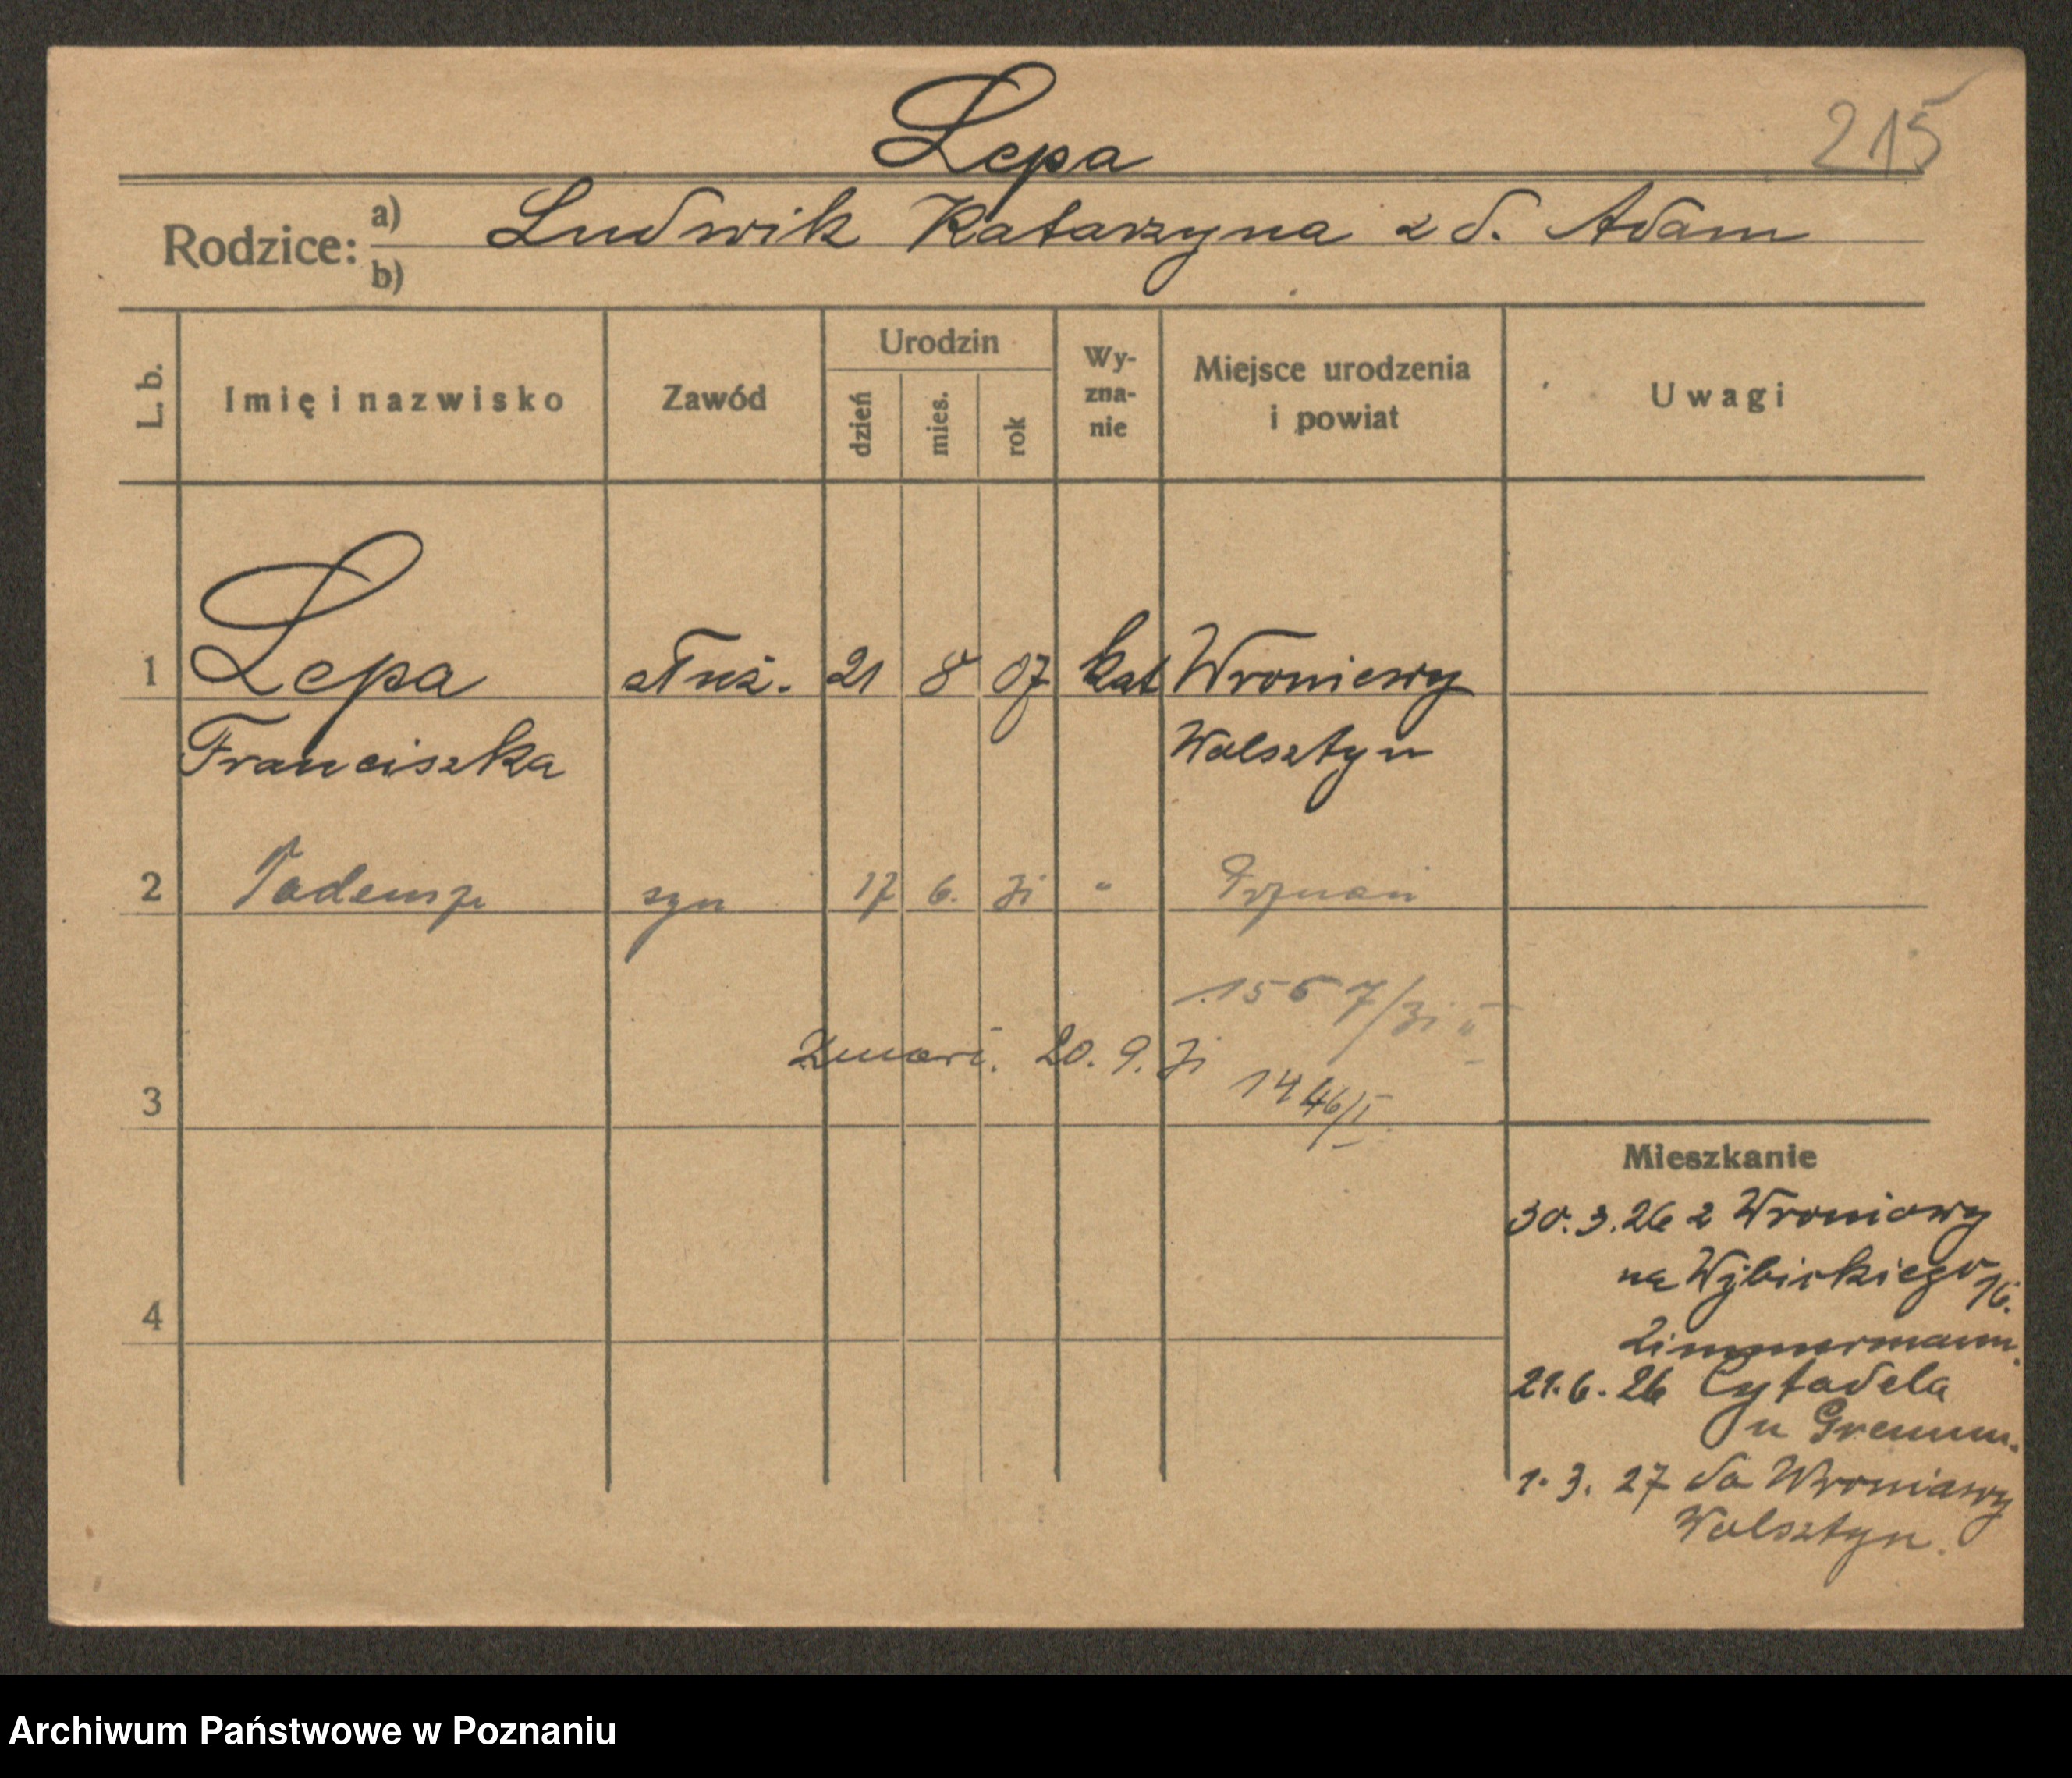 Lepa
215
Rodzice: a) Ludwik Katarzyna z d. Adam
b)
L. b.
Imię i nazwisko
Zawód
Urodzin
dzień
mies.
rok
Wy-
zna-
nie
Miejsce urodzenia
i powiat
Uwagi
1 Lepa służ. 21 8 07 kat Wroniawy
Franciszka Wolsztyn
2 Tadeusz syn 17 6. 31 " Poznań
1567/31 II
Zmarł. 20. 9. 31
1446/I
3
4
Mieszkanie
30. 3. 26 z Wroniawy
na Wybickiego 16.
Zimmermann.
21. 6. 26 Cytadela
u
1. 3. 27 do Wroniawy
Wolsztyn.
Archiwum Państwowe w Poznaniu